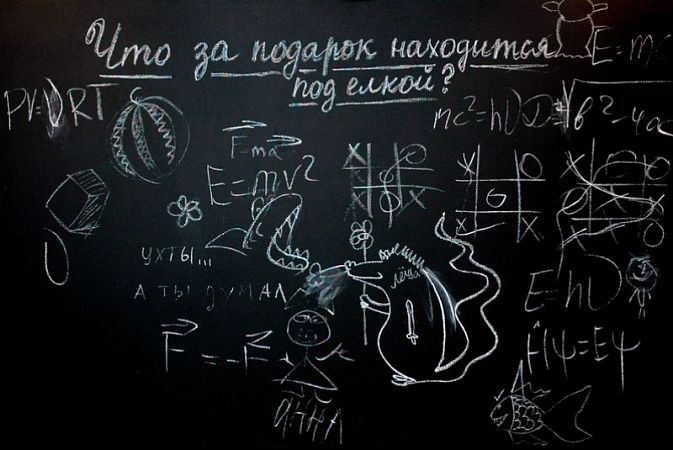 Что за подарок находится
под елкой?
E=mc
PV=νRT
mc²=hν
D=√b²-4ac
F=ma
E=mv²
УХТЫ...
А ТЫ ДУМАЛ
Лёша
E=hν
F=-F
Ĥψ=Eψ
АННА